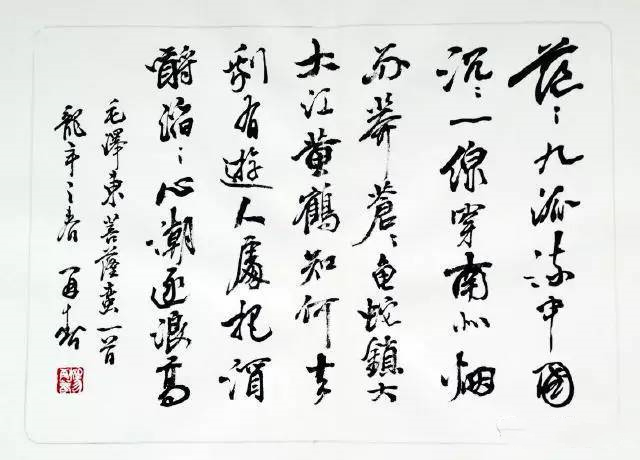 茫〻九派流中國
沉〻一線穿南北烟
雨莽蒼〻龜蛇鎖大
大江黄鶴知何去
剩有遊人處把酒
酹滔〻心潮逐浪高
毛澤東菩薩蠻一首
龍年之春